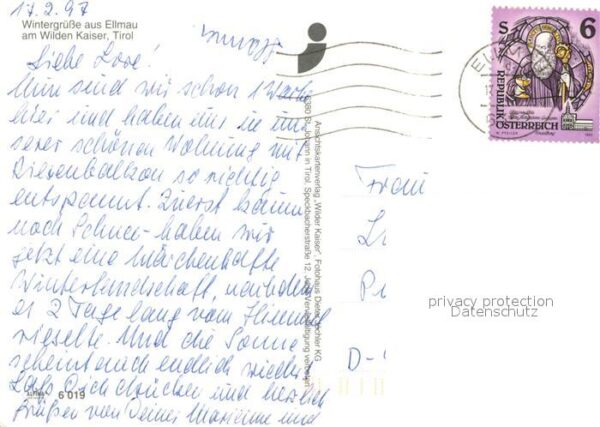 17.2.97
Wintergrüße aus Ellmau
am Wilden Kaiser, Tirol
Liebe Lore!
Nun sind wir schon 1 Woche
hier und haben uns in un
serer schönen Wohnung mit
Riesenbalkon so richtig
entspannt. Zuerst kaum
noch Schnee - haben wir
jetzt eine märchenhafte
Winterlandschaft, nachdem
es 2 Tage lang vom Himmel
rieselte. Und die Sonne
scheint auch endlich wieder.
Laß Dich drücken und herzlich
grüßen von Deiner Marianne und
6 019
Ansichtskartenverlag „Wilder Kaiser", Fotohaus
6380 St. Johann in Tirol, Speckbacherstraße 12, Jede Vervielfältigung verboten
S 6
REPUBLIK
ÖSTERREICH
Frau
D-
privacy protection
Datenschutz